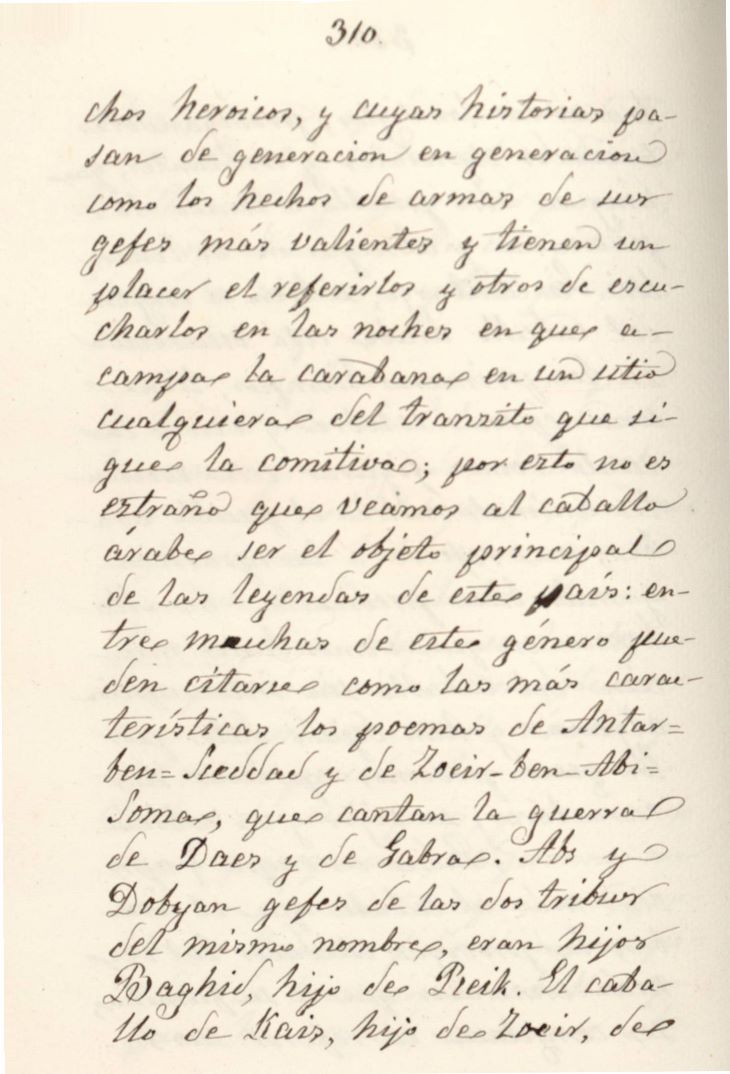 310.
chos heroicos, y cuyas historias pa-
san de generacion en generacion
como los hechos de armas de sus
gefes más valientes y tienen un
placer el referirlos y otros de escu-
charlos en las noches en que a-
campa la carabana en un sitio
cualquiera del transito que si-
gue la comitiva; por esto no es
estraño que veámos al caballo
árabe ser el objeto principal
de las leyendas de este país: en-
tre muchas de este género pue-
den citarse como las más carac-
terísticas los poemas de Antar=
ben= Sceddad y de Zoeir-ben-Abi=
Soma, que cantan la guerra
de Daes y de Gabra. Abs y
Dobyan gefes de las dos tribus
del mismo nombre, eran hijos
Baghid, hijo de Reik. El caba-
llo de Kais, hijo de Zoeir, de